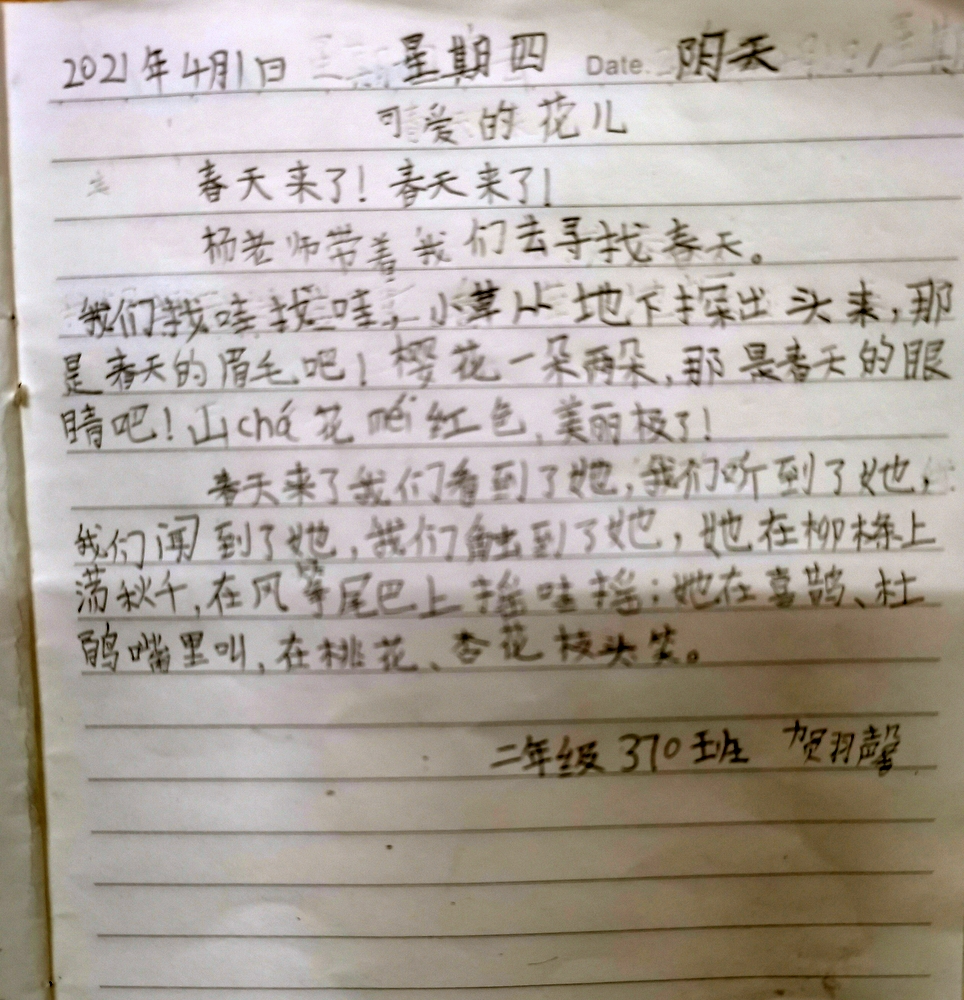 2021年4月1日 星期四 Date. 阴天
可爱的花儿
春天来了！春天来了！
杨老师带着我们去寻找春天。
我们找哇找哇，小草从地下探出头来，那
是春天的眉毛吧！樱花一朵两朵，那是春天的眼
睛吧！山chá花méi红色，美丽极了！
春天来了我们看到了她，我们听到了她，
我们闻到了她，我们触到了她，她在柳条上
荡秋千，在风筝尾巴上摇哇摇；她在喜鹊、杜
鹃嘴里叫，在桃花、杏花枝头笑。
二年级370班 贺羽馨